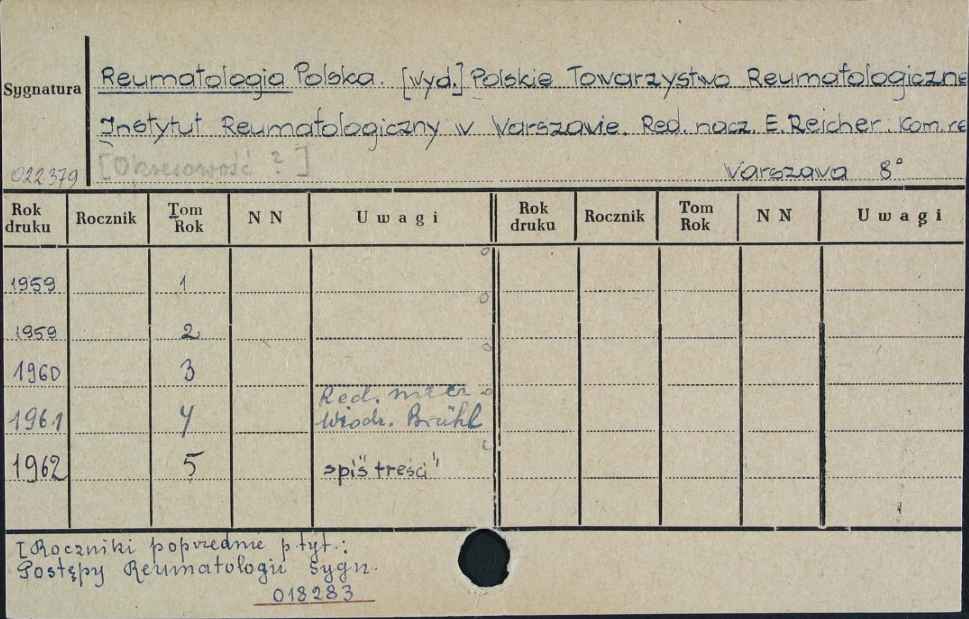 Reumatologia Polska. [Wyd.] Polskie Towarzystwo Reumatologiczne
Sygnatura
Instytut Reumatologiczny w Warszawie. Red. nacz. E. Reicher. Kom. re
022379 [Okresowość ?] Warszawa 8°
Rok druku Rocznik Tom Rok N N Uwagi Rok druku Rocznik Tom Rok N N Uwagi
1959 1
1959 2
1960 3
Red.
1961 4 Włodz. Brühl
1962 5 "spis treści"
[Roczniki poprzednie p. tyt.:
Postępy Reumatologii sygn.
018283